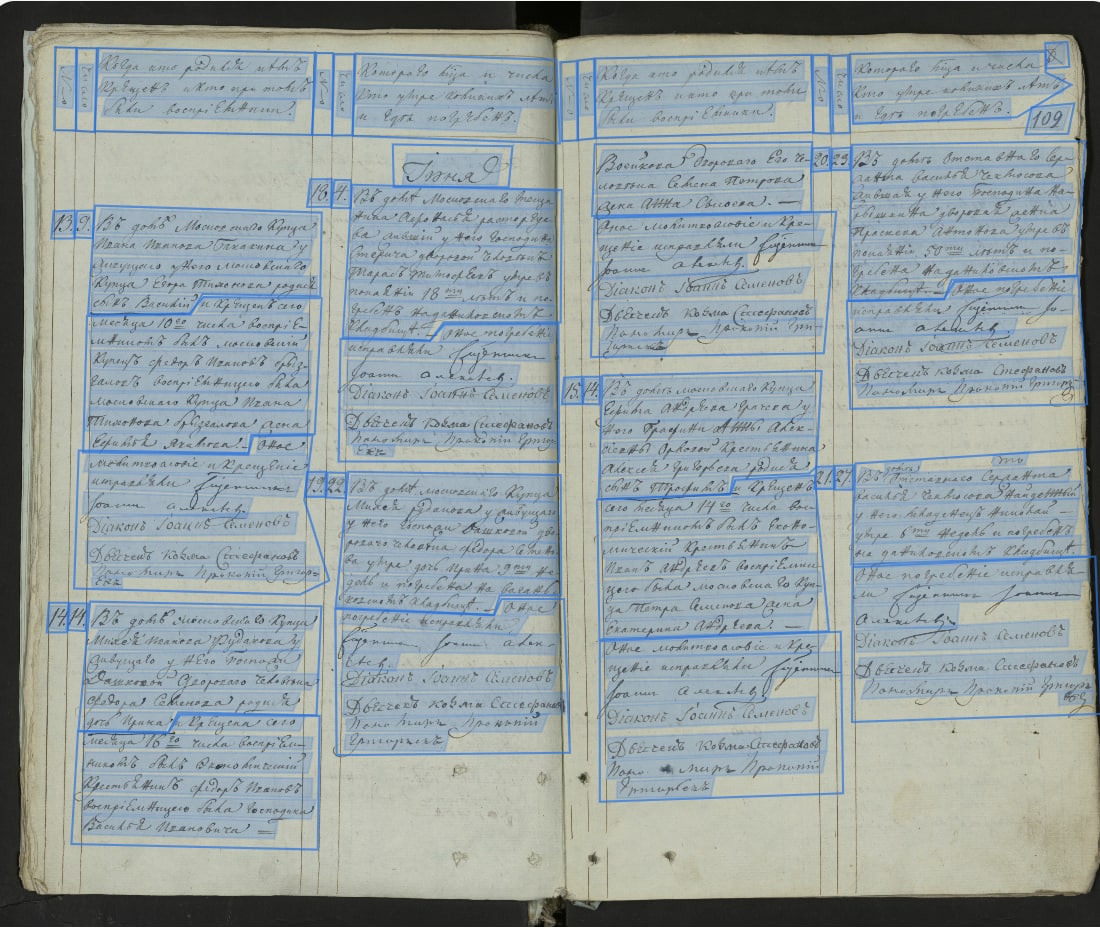 №
число
Когда кто родился и въ
крещенъ и кто при томъ
были воспріемники.
№
число
Котораго мѣсяца и числа
кто умре коликихъ лѣтъ
и гдѣ погребенъ.
Іюня
13. 9.
Въ домѣ Московскаго купца
Ивана Иванова у
живущего у него московскаго
купца Егора Тихонова родился
сынъ Василий и крещенъ сего
месяца 10го числа воспріе-
мникомъ былъ московский
купецъ федоръ Ивановъ
воспріемницею была
московскаго купца Ивана
Тихонова жена
оное
молитвословіе и крещеніе
исправляли священникъ
Іоаннъ Алексѣевъ.
Діаконъ Іоаннъ Семеновъ
Дьячекъ Козма Стефановъ
Пономарь Прокопій Григорь-
евъ
14. 14.
Въ домѣ московскаго купца
Михея Рудакова у
живущаго у него господи
Дашковой дворового человѣка
федора Семенова родилась
дочь Ирина и крещена сего
месяца 16го числа воспріем-
никомъ былъ Экономический
крестьянинъ федоръ Ивановъ
воспріемницею была господина
Василья Ивановича
18. 4.
Въ домѣ Московскаго
живший у него господина
дворовой человѣкъ
Тарасъ Тимофеевъ умре въ
18ти лѣтъ и по-
гребенъ на даниловскомъ
кладбищѣ. оное погребеніе
исправляли священникъ
Іоаннъ Алексѣевъ.
Діаконъ Іоаннъ Семеновъ
Дьячекъ Козма Стефановъ
Пономарь Прокопій Григорь-
евъ
19. 22.
Въ домѣ московскаго купца
Михея Рудакова у живущаго
у него господи Дашковой дво-
роваго человѣка федора Семено-
ва умре дочь Ирина 9ти не-
дель и погребена на
кладбищѣ. оное
погребеніе исправляли
священникъ Іоаннъ Алек-
сѣевъ.
Діаконъ Іоаннъ Семеновъ
Дьячекъ Козма Стефановъ
Пономарь Прокопій
Григорьевъ
№
число
Когда кто родился и въ
крещенъ и кто при томъ
были воспріемники.
№
число
Котораго мѣсяца и числа
кто умре коликихъ лѣтъ
и гдѣ погребенъ.
109
Воейкова дворового Его че-
ловѣка Семена Петрова
жена Анна
Оное молитвословіе и кре-
щеніе исправляли священникъ
Іоаннъ Алексѣевъ.
Діаконъ Іоаннъ Семеновъ.
Дьячекъ Козма Стефановъ
Пономарь Прокопій Гри-
горьевъ
15. 14.
Въ домѣ московскаго купца
Андреева у
него Графини Анны Алек-
сѣевны Орловой крестьянина
Алексея Григорьева родился
сынъ Трофимъ и крещенъ
сего месяца 14го числа вос-
пріемникомъ былъ Эконо-
мический крестьянинъ
Иванъ Андреевъ воспріемни-
цею была московскаго куп-
ца Петра Семенова жена
Екатерина Андреева.
Оное молитвословіе и кре-
щеніе исправляли священникъ
Іоаннъ Алексѣевъ.
Діаконъ Іоаннъ Семеновъ
Дьячекъ Козма Стефановъ
Пономарь Прокопій
Григорьевъ
20. 23.
Въ домѣ отставнаго сер-
жанта Василья
жившая у него господина На-
рышкина дворовая женка
Прасковья Антонова умре въ
50ти лѣтъ и по-
гребена на даниловскомъ
кладбищѣ. Оное погребеніе
исправляли священникъ Іо-
аннъ Алексѣевъ.
Діаконъ Іоаннъ Семеновъ
Дьячекъ Козма Стефановъ
Пономарь Прокопій Григорь-
евъ
21. 27.
Въ домѣ отставнаго Сержанта
Василья
у него младенецъ Николай
умре 6ти недель и погребенъ
на даниловскомъ кладбищѣ
Оное погребеніе исправля-
ли священникъ Іоаннъ
Алексѣевъ
Діаконъ Іоаннъ Семеновъ
Дьячекъ Козма Стефановъ
Пономарь Прокопій Григорь
евъ